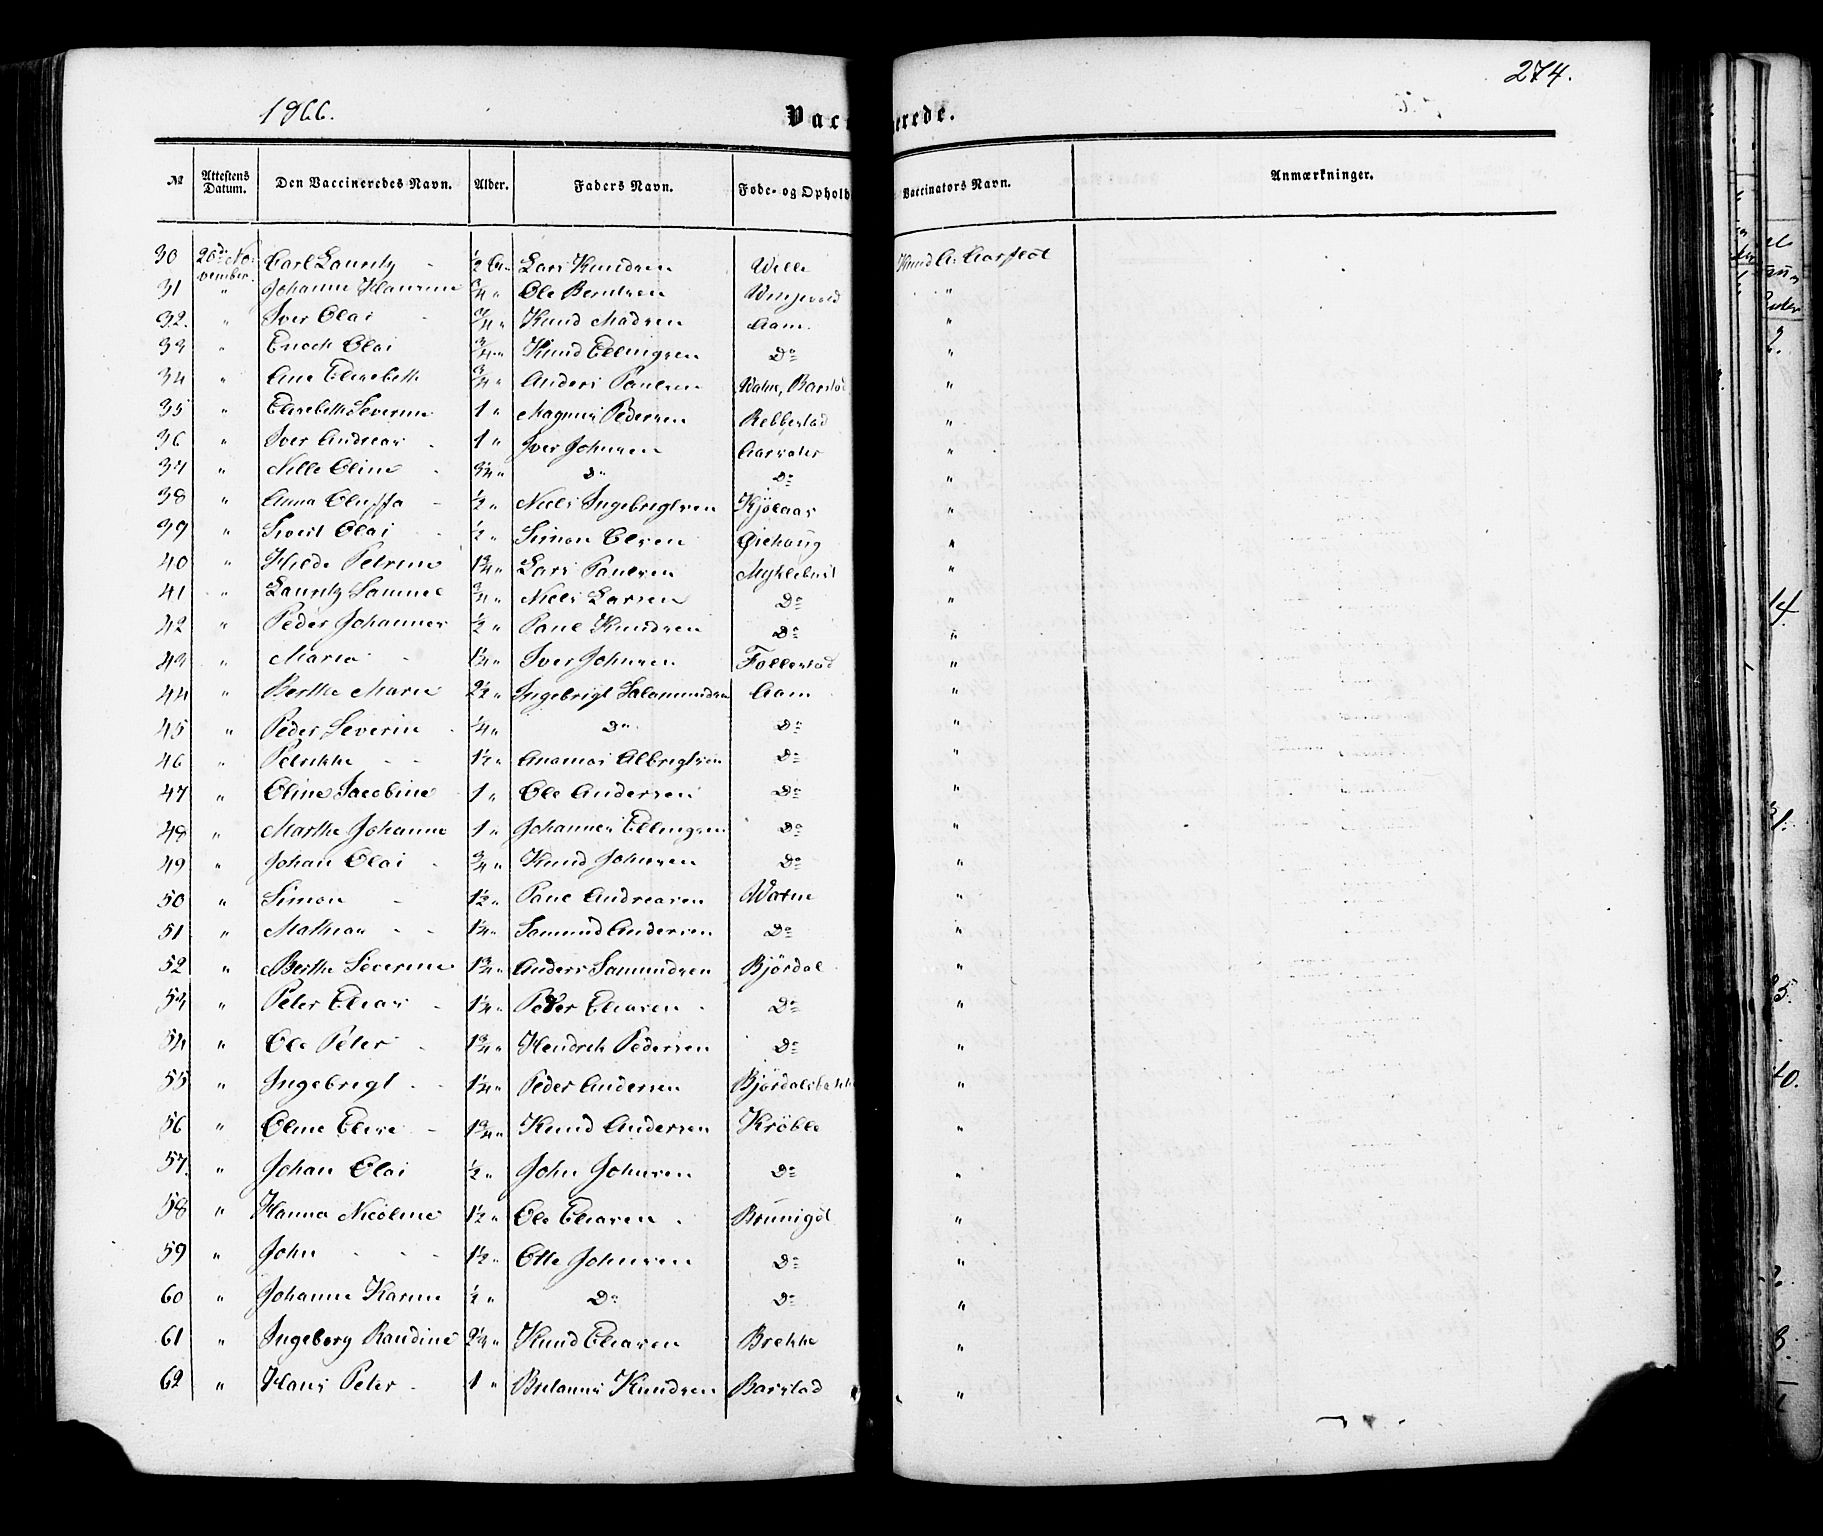 274.
1866.
Vac erede.
№ Attestens Datum. Den Vaccineredes Navn. Alder. Faders Navn. Føde- og Ophold Vaccinators Navn. Anmærkninger.
30 26d. November Carl Lauritz 1/2 Lars Knudsen Velle Knud A: Aarflot
31 " Johanne 3/4 " Ole Berntsen "
32. " Iver Olai 3/4 " Knud Madsen Aam. "
33 " Enoch Olai 3/4 " Knud Ellingsen Do "
34 " Ane Elisebeth 3/4 " Anders Paulsen Watne, Barstad "
35 " Elisebeth Severine 1 " Magnus Pedersen Rebbestad "
36 " Iver Andreas 1 " Iver Johnsen Aarsæter "
37 " Nille Oline 3/4 " Do Do "
38 " Anna Oluffa 1/2 " Niels Ingebrigtsen Kjölaas "
39 " Sivert Olai 1/2 " Simon Olsen "
40 " Petrine 1 3/4 " Lars Paulsen Myklebust "
41 " Lauritz Samuel 3/4 " Niels Larsen Do "
42 " Peder Johannes 1/2 " Paul Knudsen Do "
43 " Maria 1 1/4 " Iver Johnsen Follestad "
44 " Berthe Marie 2 1/2 " Ingebrigt Salamundsen Aam "
45 " Peder Severin 1/4 " Do Do "
46 " Petrikke 1 1/2 " Albregtsen Do "
47 " Oline Jacobine 1 " Ole Andersen Do "
48 " Marthe Johanne 1 " Johannes Ellingsen Do "
49 " Johan Olai 3/4 " Knud Johnsen Do "
50 " Simon 1 1/2 " Paul Andreasen Watne "
51 " Mathias 1 1/4 " Samund Andersen Do "
52 " Berthe Severine 1 3/4 " Anders Samundsen Björdal "
53 " Peter Elias 1 1/4 " Peder Eliasen Do "
54 " Ole Peter 1 3/4 " Hendrik Pedersen Do "
55 " Ingebrigt 1 1/4 " Peder Andersen Björdalsbakk "
56 " Oline Elise 1 3/4 " Knud Andersen Kröble "
57. " Johan Olai 1/2 " John Johnsen Do "
58 " Hanna Nicoline 1 1/2 " Ole Eliasen "
59 " John 1 1/2 " Otte Johnsen Do "
60 " Johanne Karine 1/2 " Do Do "
61 " Ingeborg Raudine 2 1/4 " Knud Eliasen Brekke "
62 " Hans Peter 1 " Knudsen Barstad "